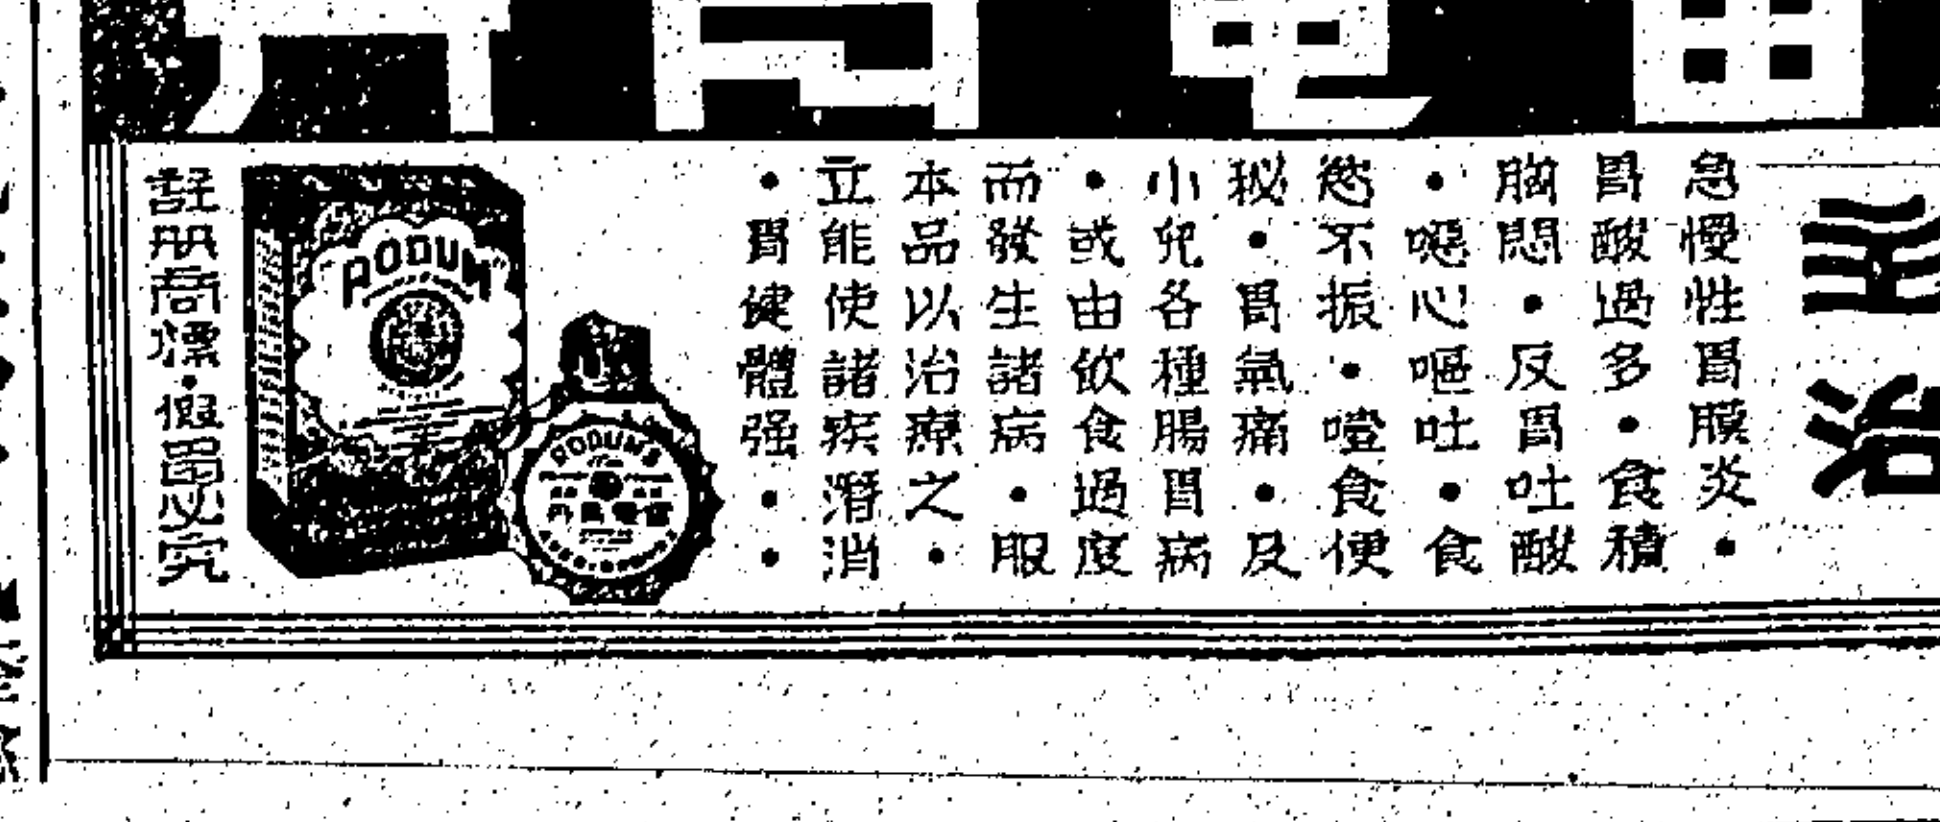 主治
急慢性胃膜炎・
胃酸過多・食積
胸悶・反胃吐酸
・噁心嘔吐・食
慾不振・噎食便
秘・胃氣痛・及
小兒各種腸胃病
・或由飲食過度
而發生諸病・服
本品以治療之・
立能使諸疾潛消
・胃健體强・・
RODUM
RODUM'S
註册商標・假冒必究